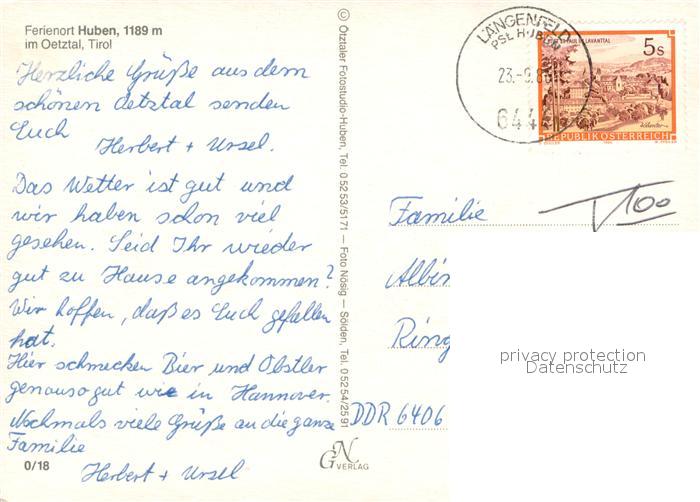 Ferienort Huben, 1189 m
im Oetztal, Tirol
Herzliche Grüße aus dem
schönen Oetztal senden
Euch
Herbert + Ursel.
Das Wetter ist gut und
wir haben schon viel
gesehen. Seid Ihr wieder
gut zu Hause angekommen?
Wir hoffen, daß es Euch gefallen
hat.
Hier schmecken Bier und Obstler
genauso gut wie in Hannover.
Nochmals viele Grüße an die ganze
Familie
Herbert + Ursel
0/18
© Ötztaler Fotostudio-Huben, Tel. 05253/5171 — Foto Nösig — Sölden, Tel. 05254/2591
GN
VERLAG
LÄNGENFELD
PSt. HUBEN
23.-9.8
6444
5s
REPUBLIK ÖSTERREICH
T 100
Familie
Albin
Ring
DDR 6406
privacy protection
Datenschutz